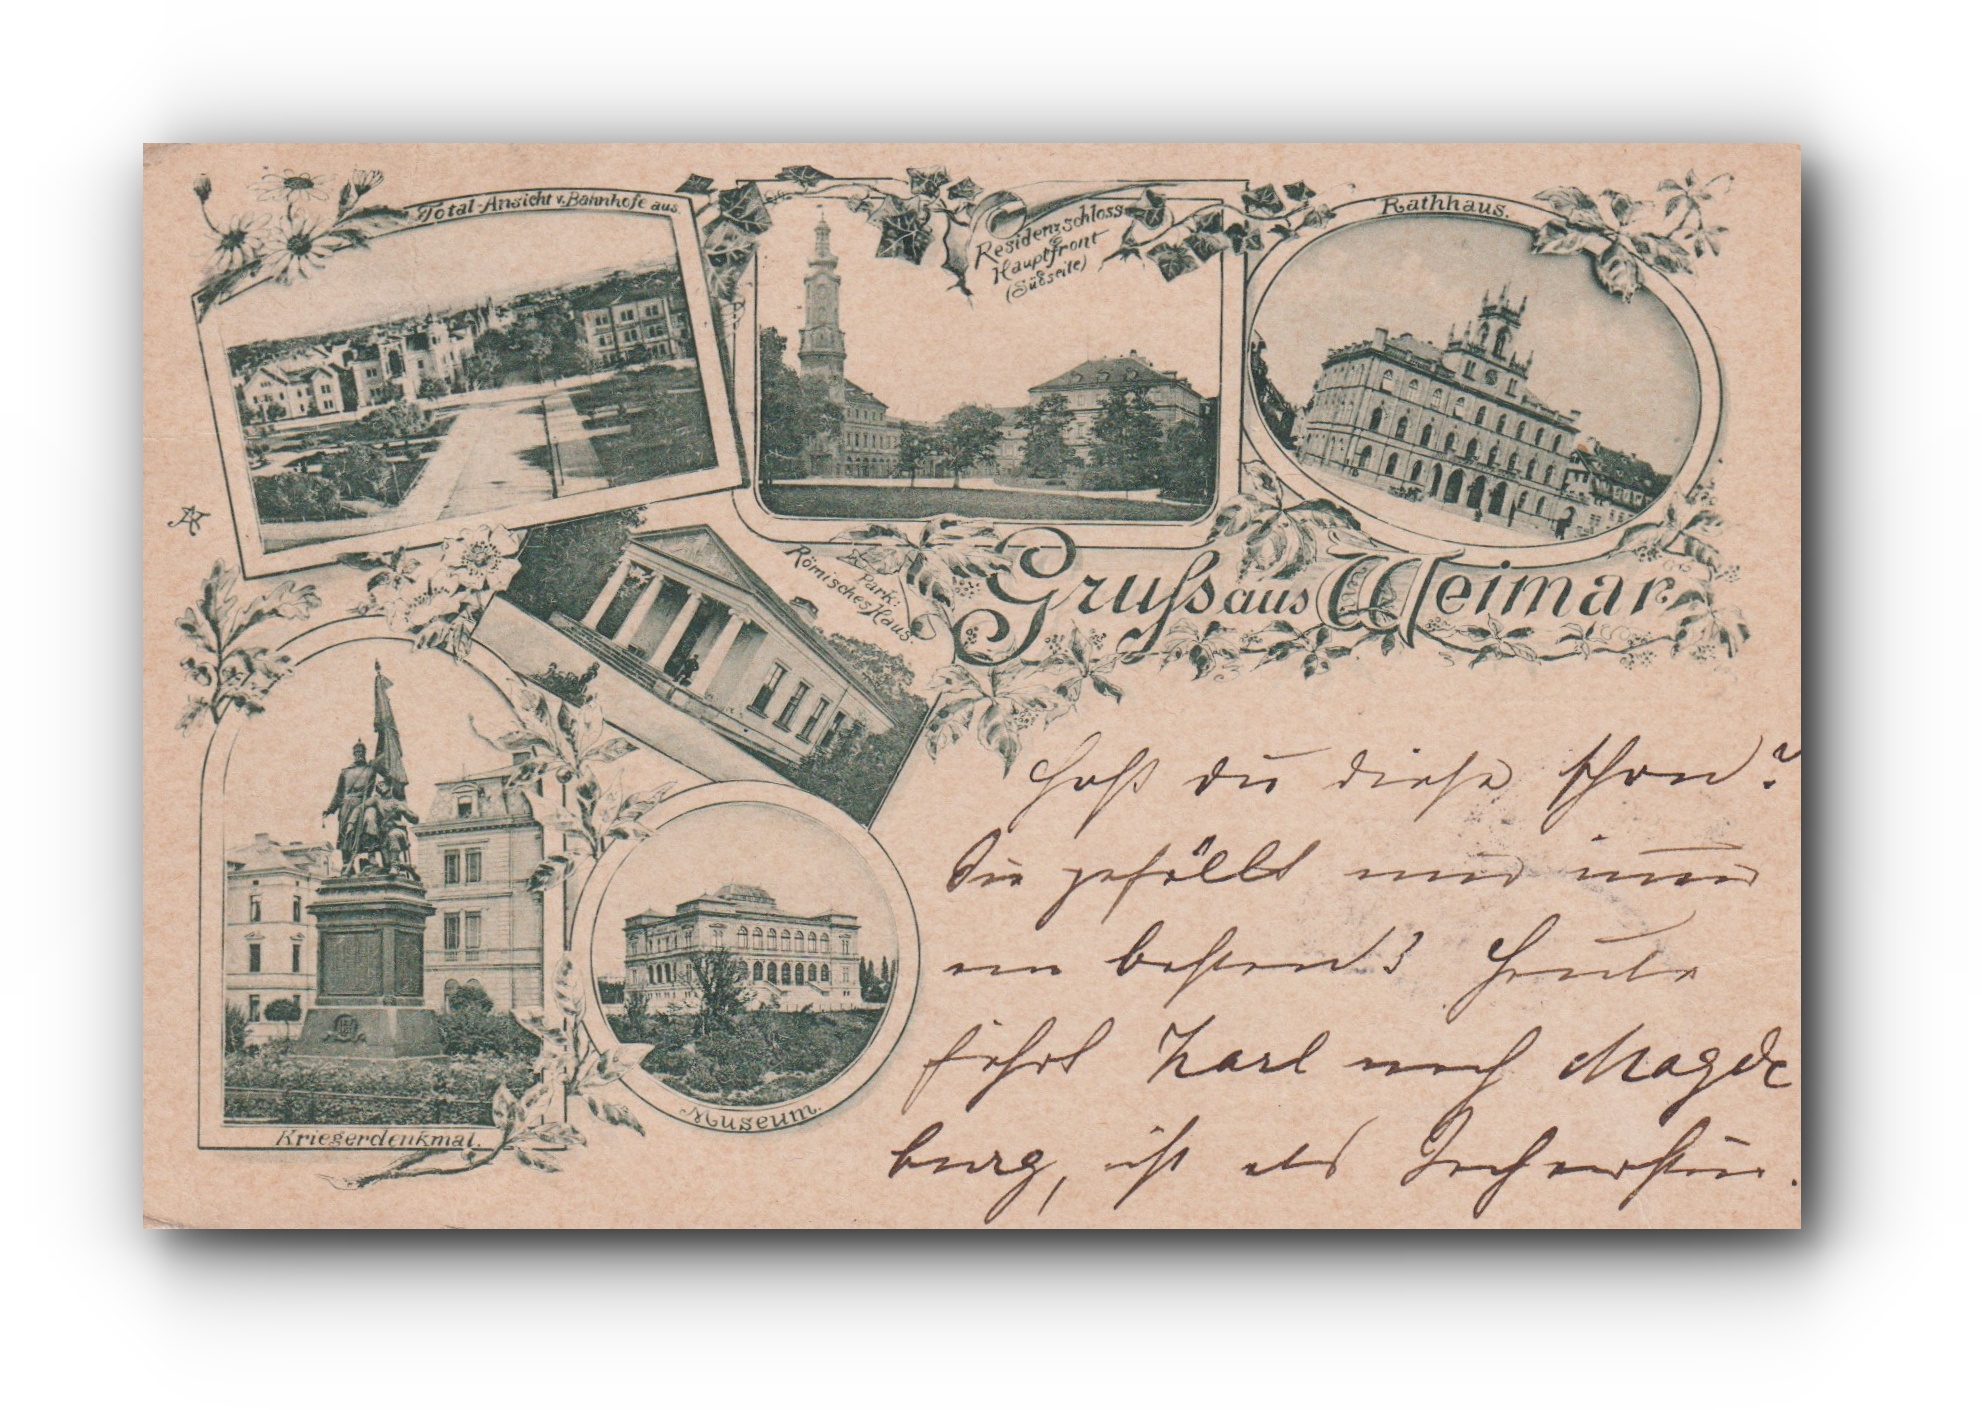 Total-Ansicht v. Bahnhofe aus.
Residenzschloss
Hauptfront
(Südseite)
Rathhaus.
Park:
Römisches Haus.
Gruss aus Weimar
Kriegerdenkmal.
Museum.
Hast du diese schon?
Sie gefällt mir immer
am besten! Heute
fährt Karl nach Magde
burg, ist als